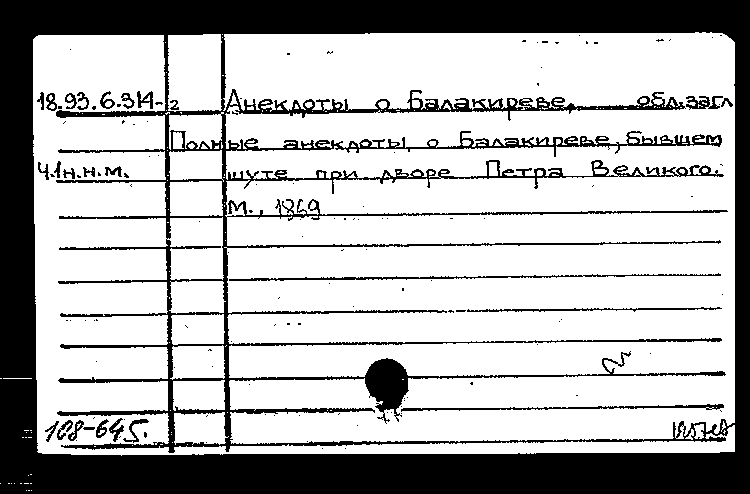 18.93.6.314-2 Анекдоты о Балакиреве, обл.загл
Полные анекдоты о Балакиреве, бывшем
Ч.1н.н.м. шуте при дворе Петра Великого.
М., 1869
108-645.